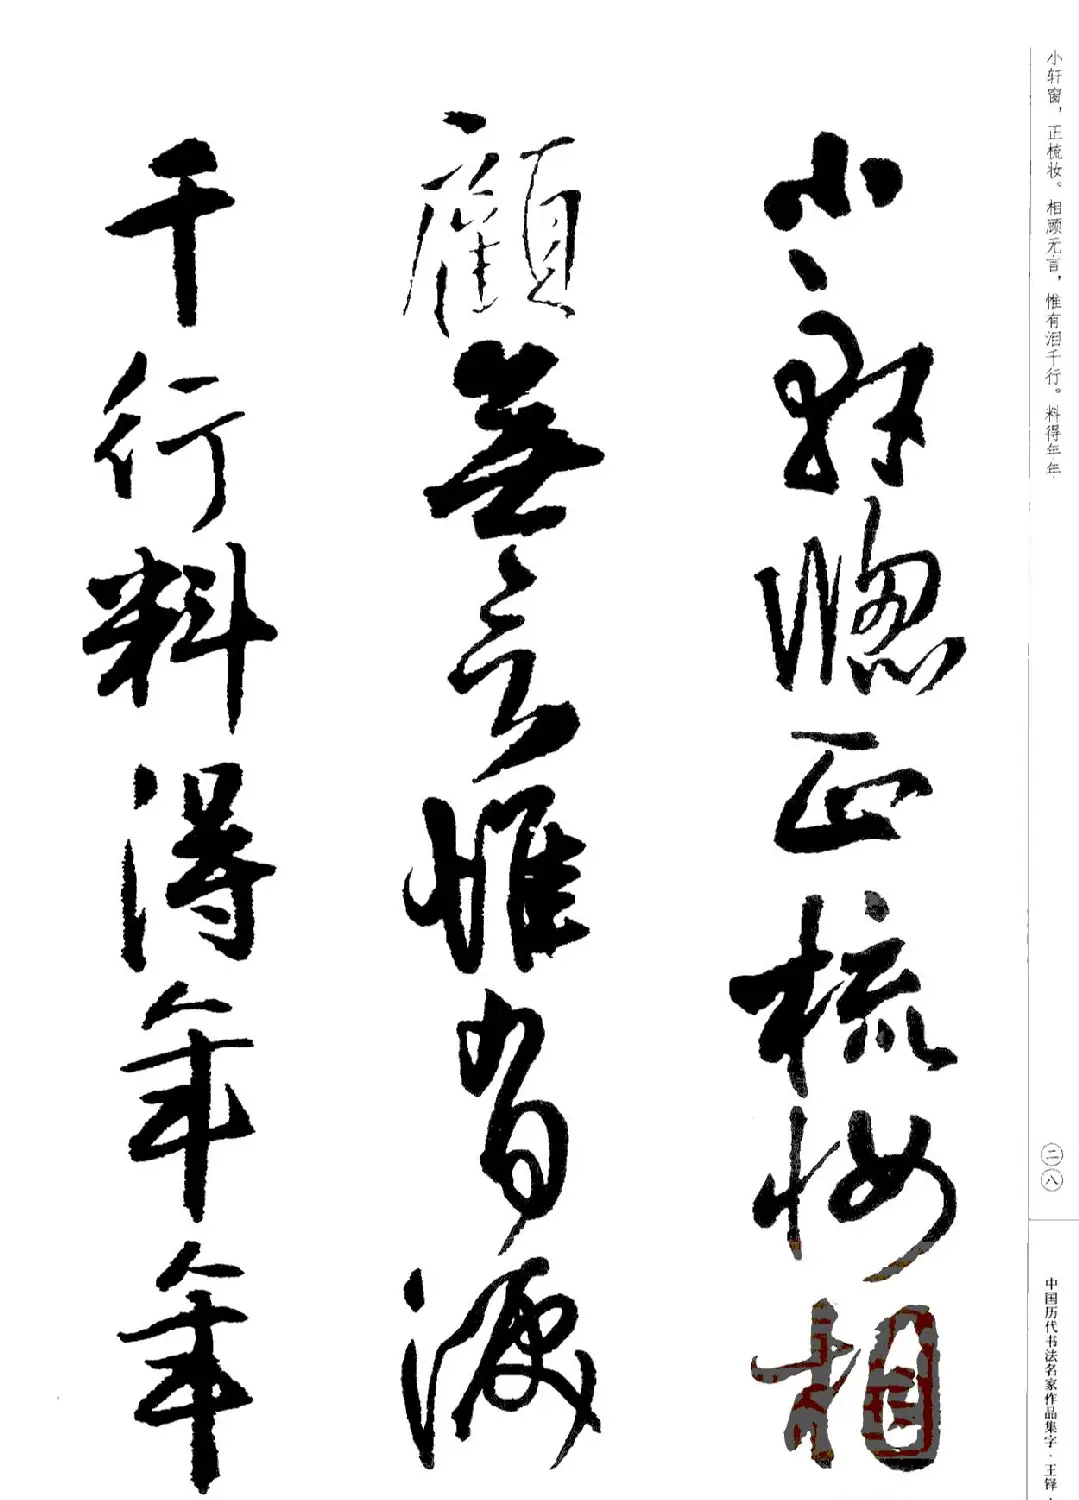 小轩窗，正梳妆。相顾无言，惟有泪千行。料得年年
二八
中国历代书法名家作品集字·王铎·
小軒窓正梳妝相
顧無言惟有淚
千行料得年年